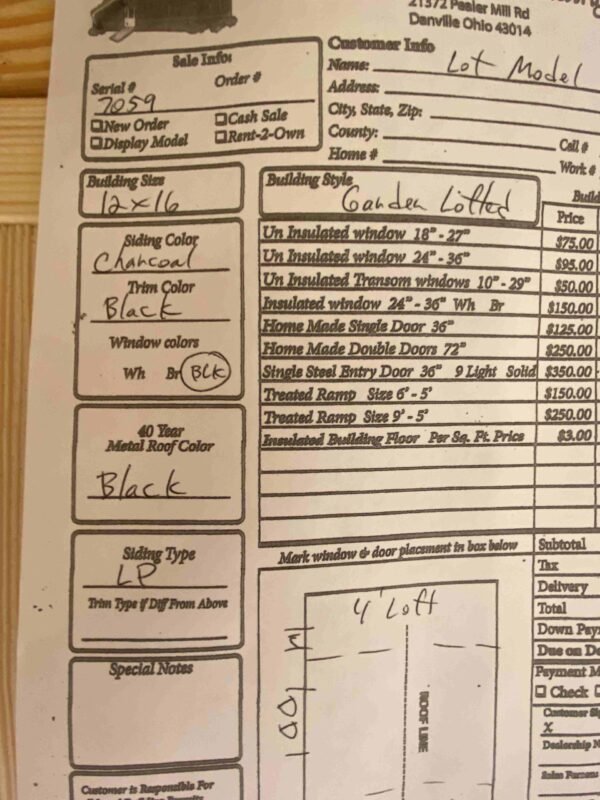 21372 Pealer Mill Rd
Danville Ohio 43014
Sale Info:
Serial #
Order #
7059
New Order
Cash Sale
Display Model
Rent-2-Own
Customer Info
Name: Lot Model
Address:
City, State, Zip:
County:
Cell #
Home #
Work #
Building Size
12x16
Building Style
Garden Lofted
Price
Un Insulated window 18" - 27" $75.00
Un Insulated window 24" - 36" $95.00
Un Insulated Transom windows 10" - 29" $50.00
Insulated window 24" - 36" Wh Br $150.00
Home Made Single Door 36" $125.00
Home Made Double Doors 72" $250.00
Single Steel Entry Door 36" 9 Light Solid $350.00
Treated Ramp Size 6' - 5' $150.00
Treated Ramp Size 9' - 5' $250.00
Insulated Building Floor Per Sq. Ft. Price $3.00
Siding Color
Charcoal
Trim Color
Black
Window colors
Wh Br BLK
40 Year
Metal Roof Color
Black
Siding Type
LP
Trim Type if Diff From Above
Special Notes
Customer is Responsible For
Mark window & door placement in box below
4' Loft
ROOF LINE
Subtotal
Tax
Delivery
Total
Down Pay
Due on De
Payment M
Check
Customer Sig
X
Dealership N
Sales Person